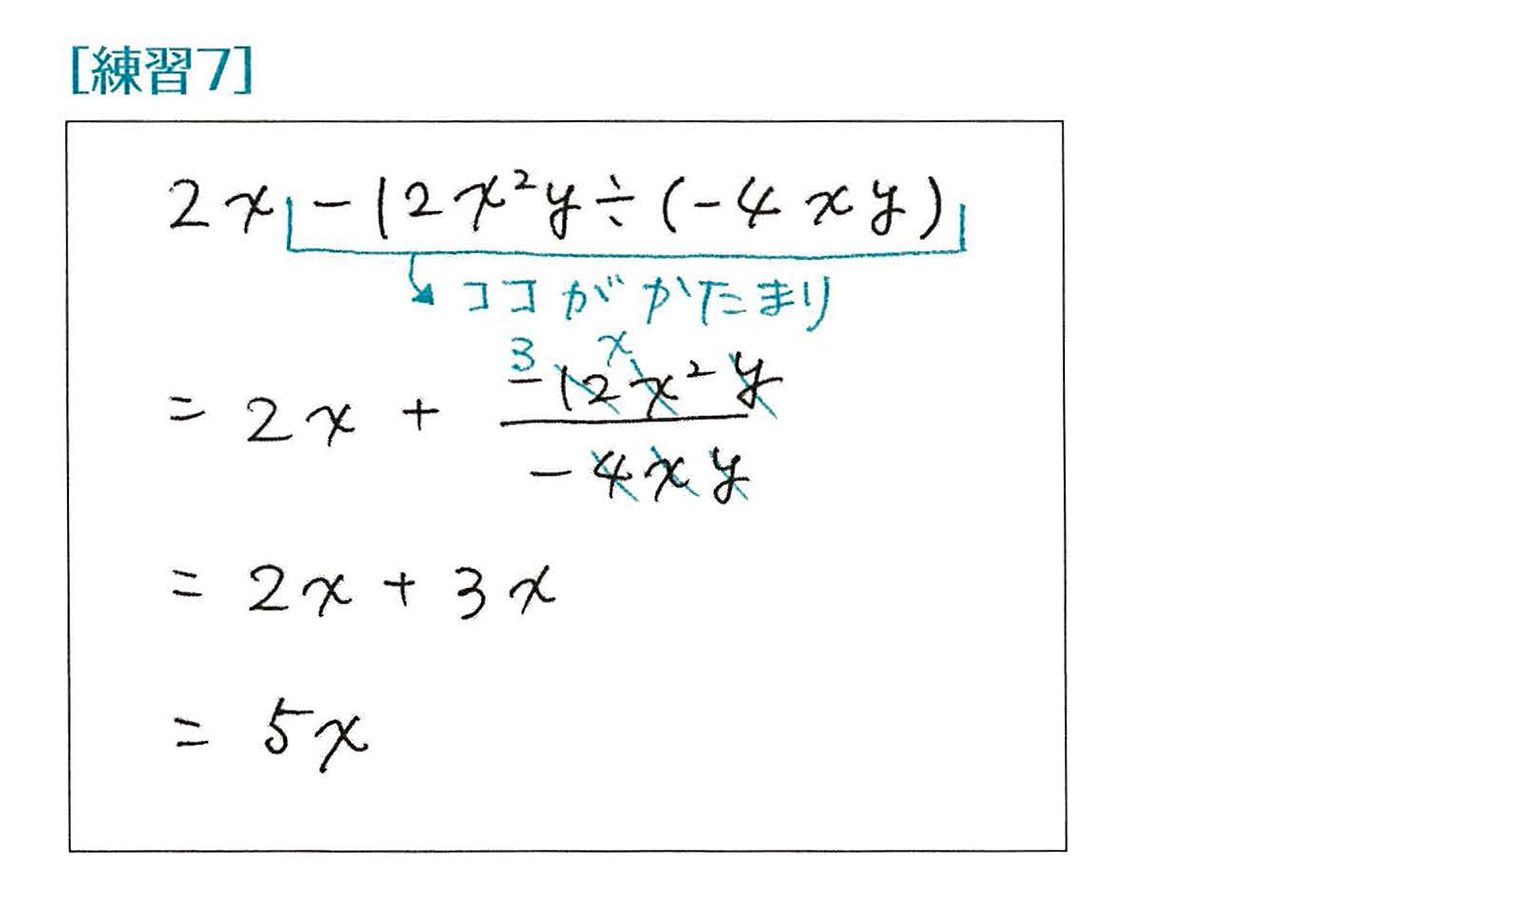 [練習7]
2x - 12x²y ÷ (-4xy)
ココがかたまり
3 x
= 2x + -12x²y
-4xy
= 2x + 3x
= 5x